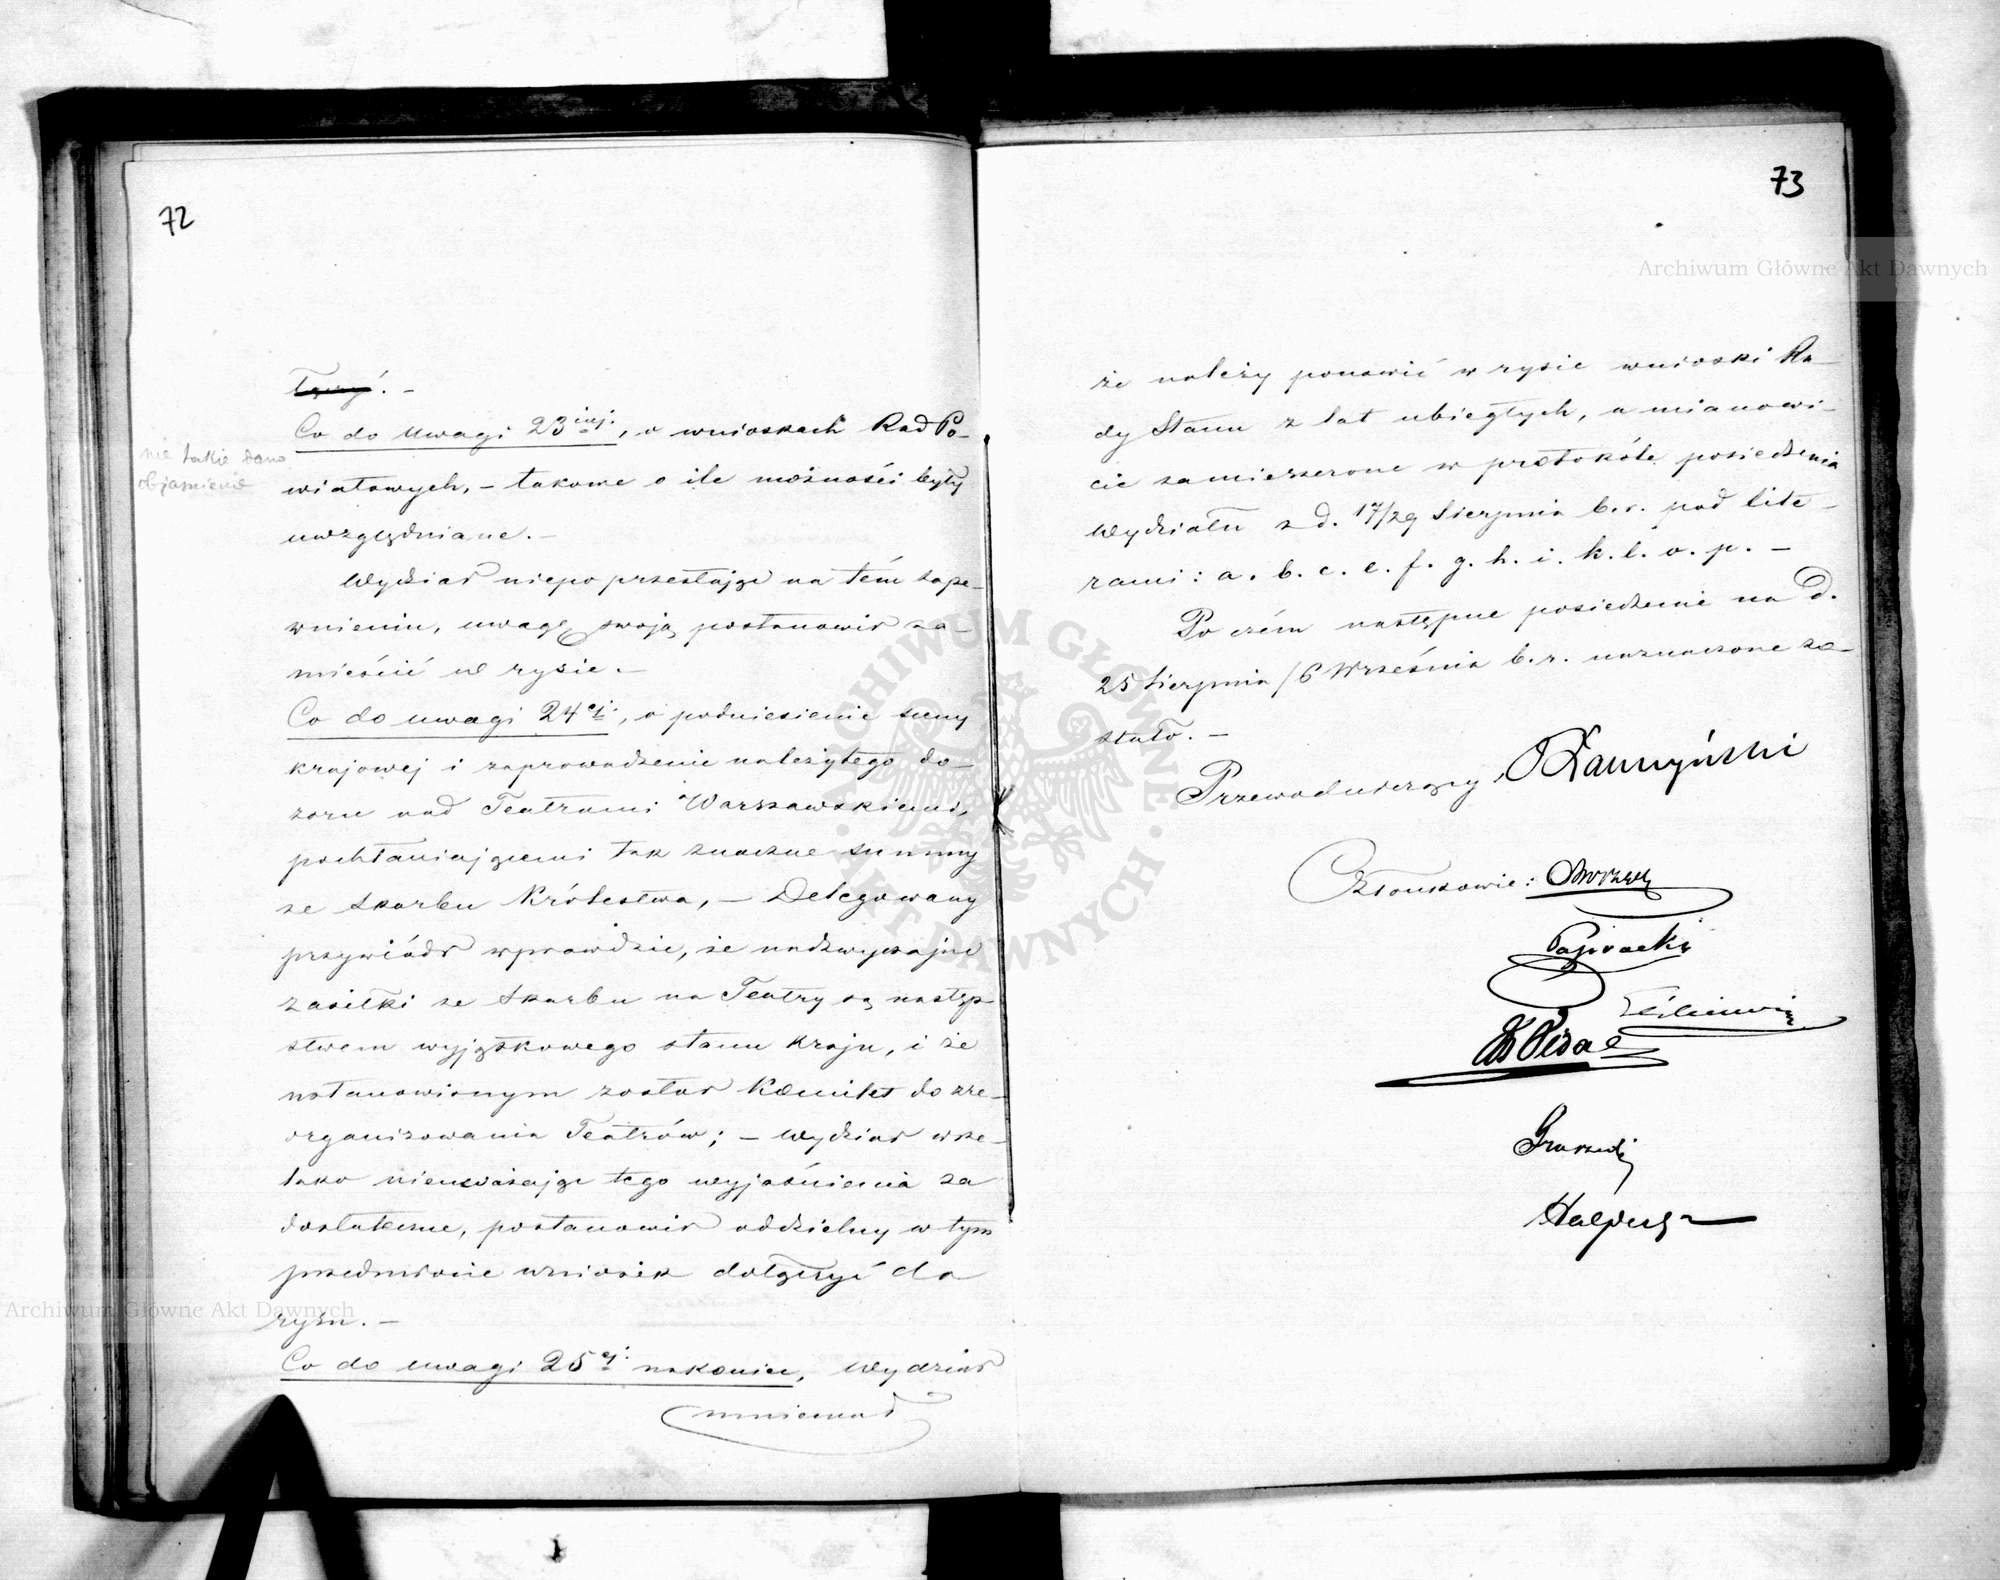 72
łączyć. –
Co do Uwagi 23ciej, o wnioskach Rad Po-
nie takie dano
objaśnienie
wiatowych, – takowe o ile możności były
uwzględniane. –
Wydział niepoprzestając na tém zape-
wnieniu, uwagę swoją postanowił za-
mieścić w rysie. –
Co do uwagi 24ej, o podniesienie sceny
krajowej i zaprowadzenie należytego do-
zoru nad Teatrami Warszawskiemi,
pochłaniającemi tak znaczne summy
ze Skarbu Królestwa, – Delegowany
przywiódł wprawdzie, że nadzwyczajne
zasiłki ze Skarbu na Teatry są następ-
stwem wyjątkowego stanu kraju, i że
ustanowionym został Komitet do zre-
organizowania Teatrów; – Wydział wsze-
lako nieuważając tego wyjaśnienia za
dostateczne, postanowił oddzielny w tym
przedmiocie wniosek dołączyć do
rysu. –
Co do uwagi 25ej nakoniec, Wydział
mniemał
73
że należy ponowić w rysie wnioski Ra-
dy Stanu z lat ubiegłych, a mianowi-
cie zamieszczone w protokóle posiedzenia
Wydziału z d. 17/29 Sierpnia b.r. pod lite-
rami: a. b. c. e. f. g. h. i. k. l. o. p. –
Po czém następne posiedzenie na d.
25 Sierpnia / 6 Września b.r. naznaczone zo-
stało. –
Przewodniczący
Członkowie:
Archiwum Główne Akt Dawnych
Archiwum Główne Akt Dawnych
ARCHIWUM GŁÓWNE · AKT DAWNYCH ·